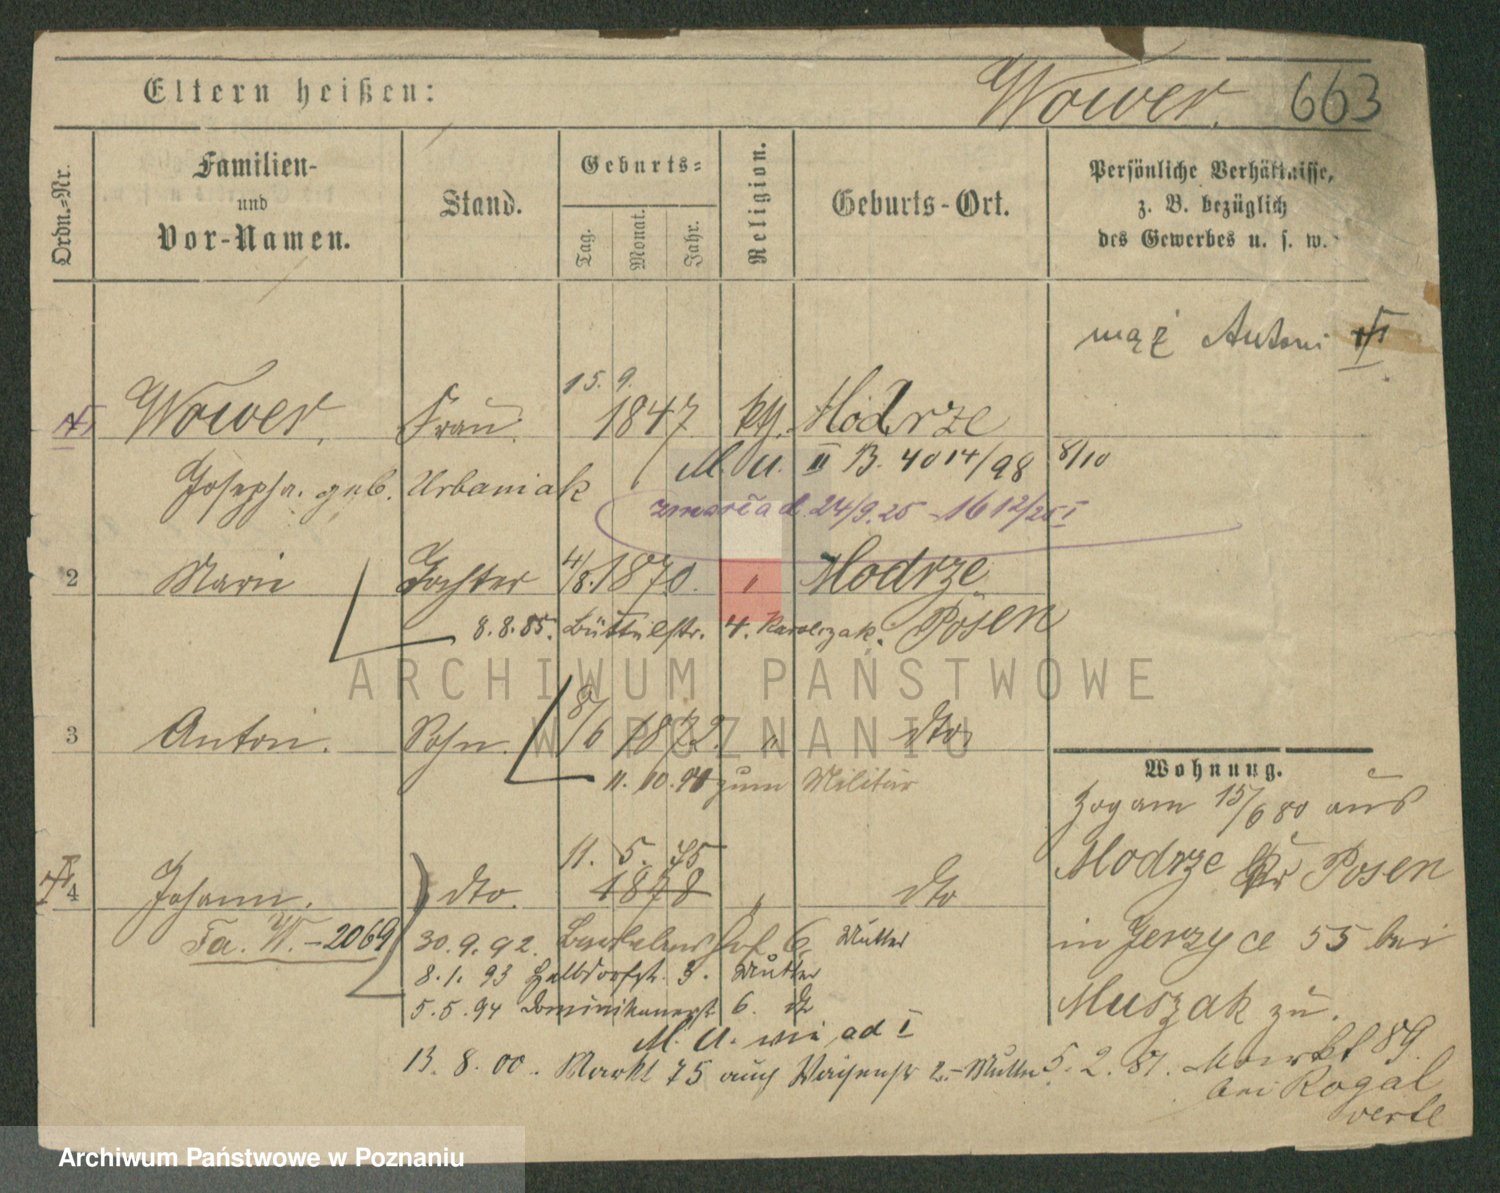 Eltern heißen: Wower. 663
Ordn.-Nr.
Familien-
und
Vor-Namen.
Stand.
Geburts-
Tag.
Monat.
Jahr.
Religion.
Geburts-Ort.
Persönliche Verhältnisse,
z. B. bezüglich
des Gewerbes u. s. w.
mąż Antoni
15. 9.
Wower, Frau. 1847 kth. Modrze
M. U. II B. 4014/98 8/10
Josepha. geb. Urbaniak
zmarła d. 24/9.25 - 1612/25 I
2 Marie Tochter 4/8. 1870. " Modrze
8.8.85. Büttelstr. 4. Karolczak. Posen
3 Anton. Sohn. 8/6 1872. " dto
11. 10. zum Militär
11. 5. 75
4 Johann. dto. 1878 " dto
Fa. W. - 2069
30. 9. 92. 6 Mutter
8. 1. 93 Halbdorfstr. 3. Mutter
5. 5. 94 Dominikanerst 6. dto
M. U. wie ad I
13. 8. 00. Markt 75 auch Waisenstr 2. - Mutter
Wohnung.
Zog am 15/6 80 aus
Modrze Kr Posen
in Jerzyce 55 bei
Muszak zu.
5. 2. 81. Markt 89.
bei Rogal
verte
ARCHIWUM PAŃSTWOWE
W POZNANIU
Archiwum Państwowe w Poznaniu